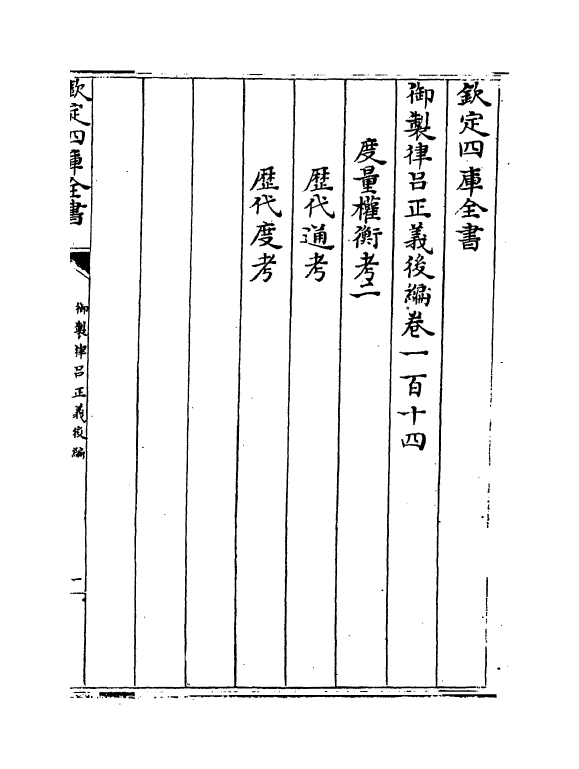 欽定四庫全書
御製律呂正義後編卷一百十四
度量權衡考二
歴代通考
歴代度考
欽定四庫全書
御製律呂正義後編
一